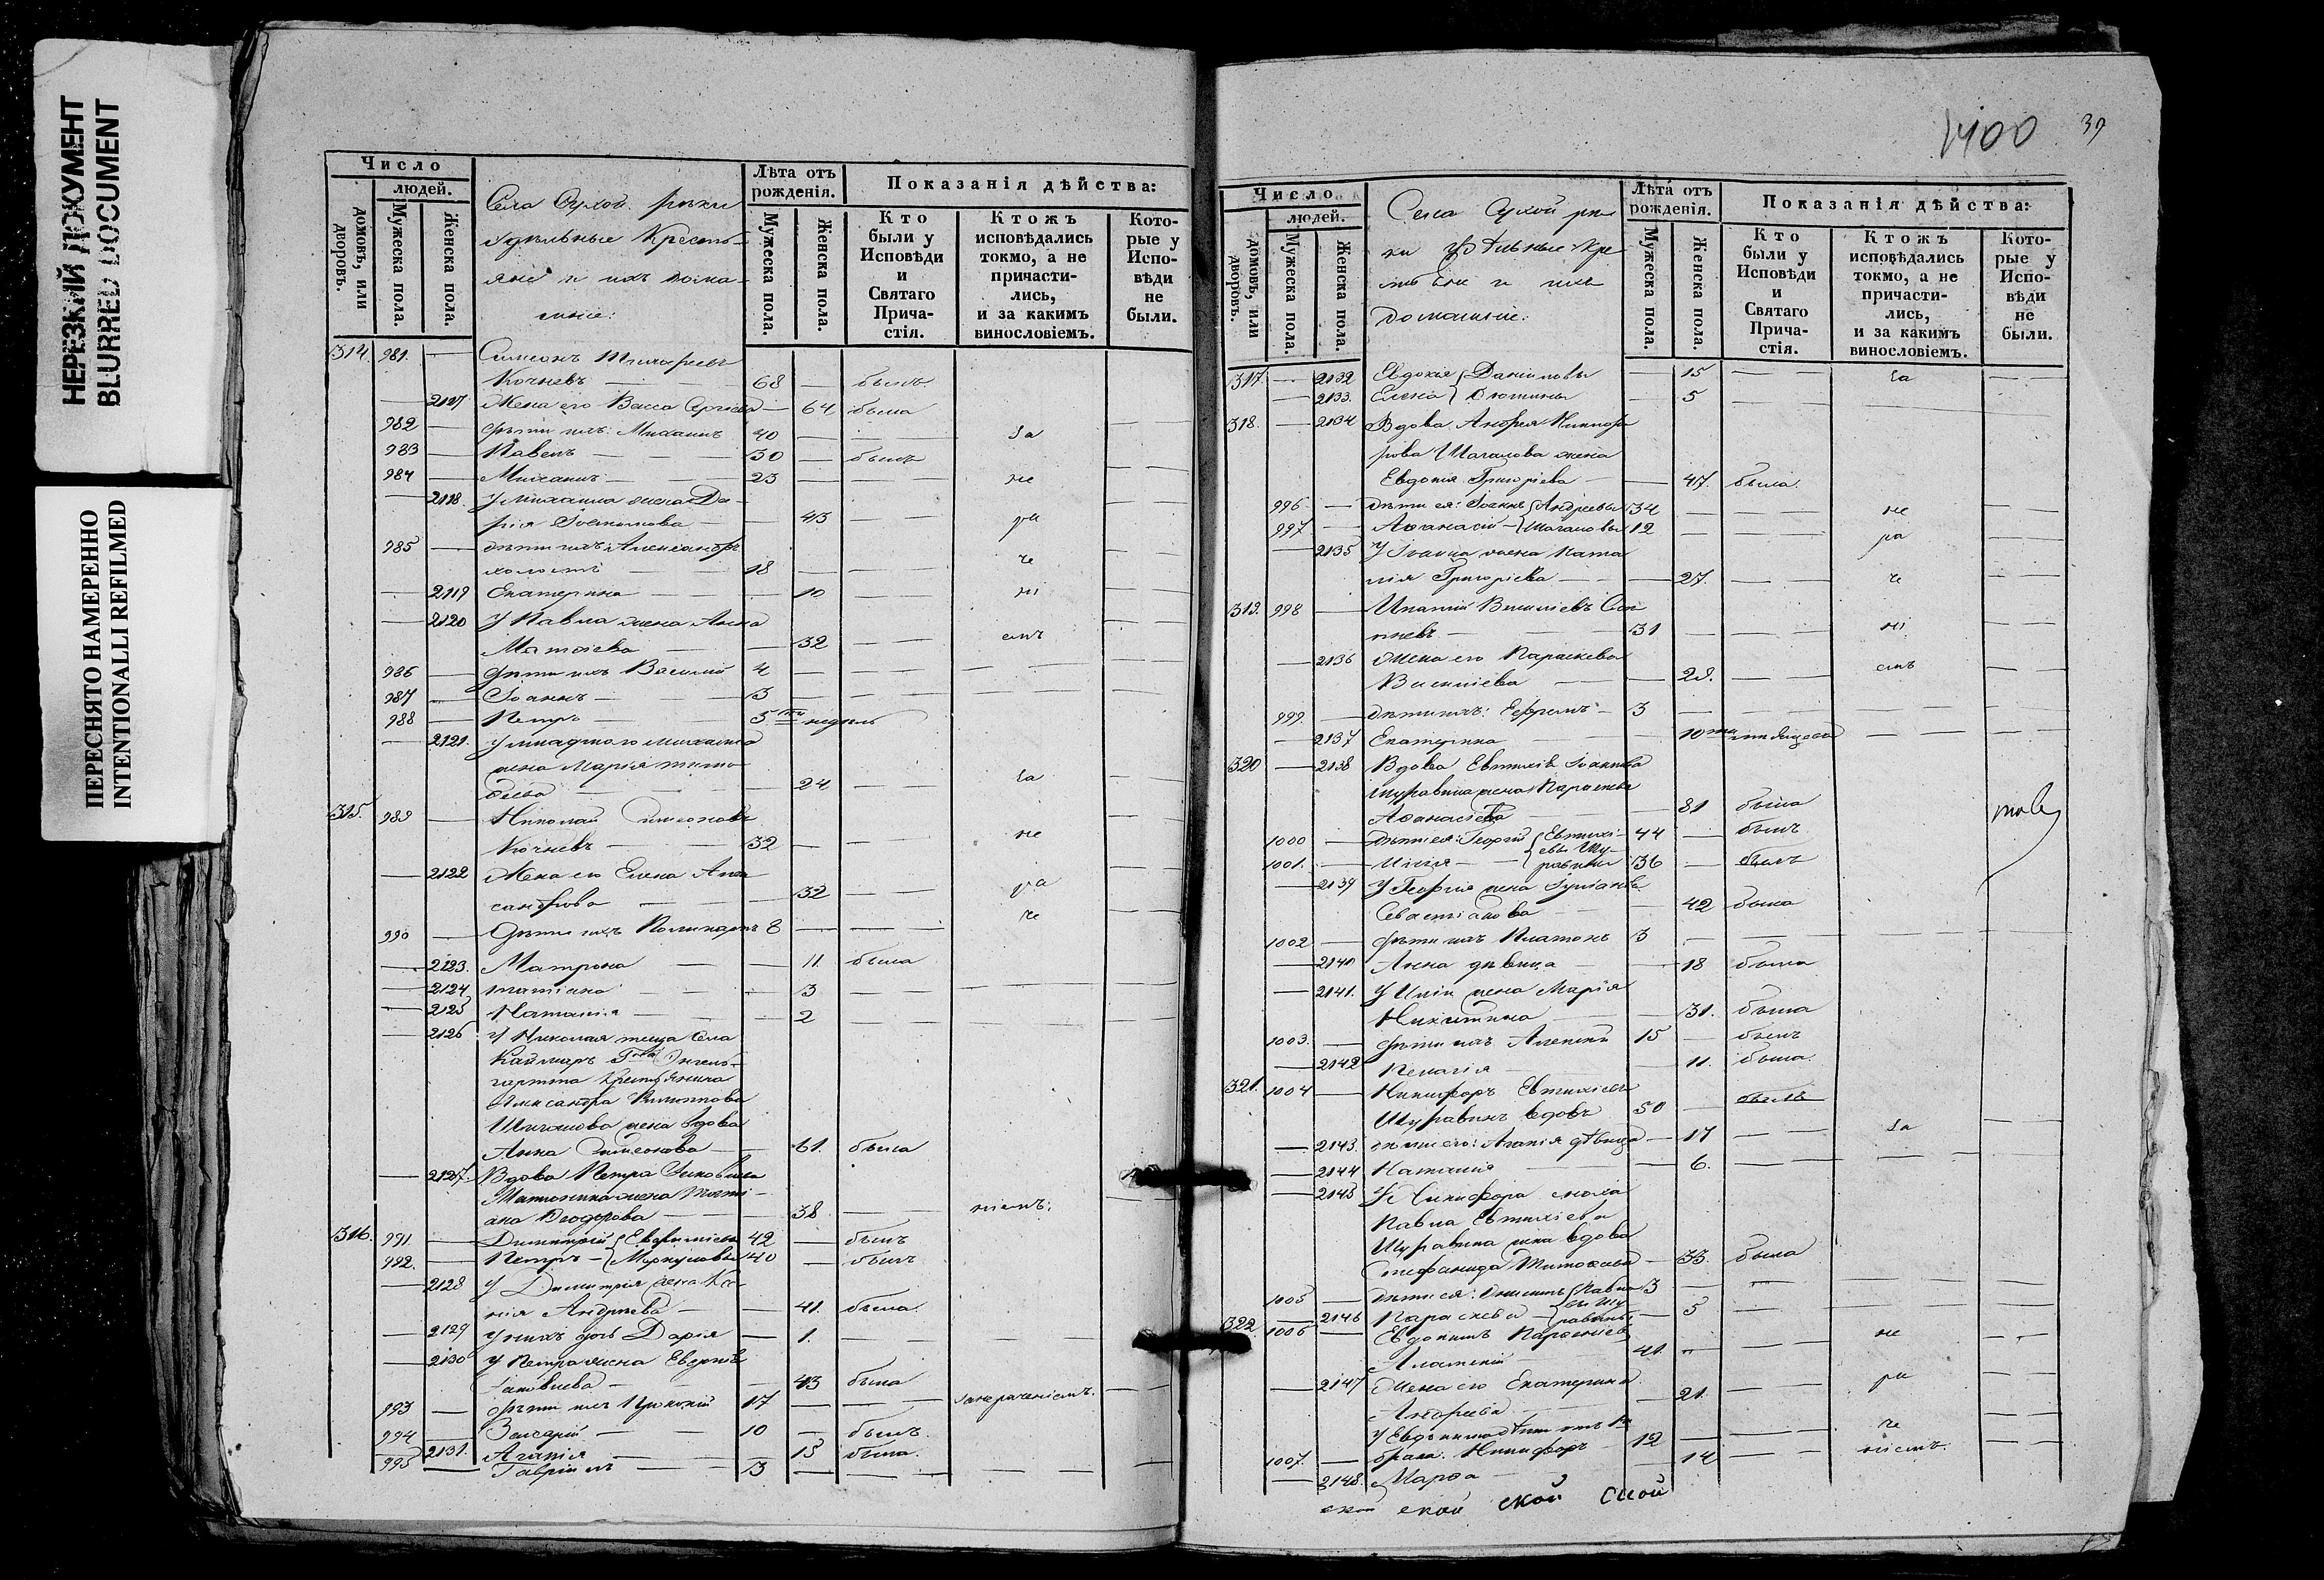 НЕРЕЗКИЙ ДОКУМЕНТ
BLURRED DOCUMENT
ПЕРЕСНЯТО НАМЕРЕННО
INTENTIONALLI REFILMED
Число
людей.
домовъ, или дворовъ.
Мужеска пола.
Женска пола.
Села Сухой рѣчки
удѣльные Кресть-
яне и ихъ дома-
шніе:
Лѣта отъ рожденія.
Мужеска пола.
Женска пола.
Показанія дѣйства:
Кто были у Исповѣди и Святаго Прича-стія.
Ктожъ исповѣдались токмо, а не причасти-лись, и за какимъ винословіемъ.
Кото-рые у Испо-вѣди не были.
314. 981. — Симеонъ
Кочневъ — 68 — былъ
— 2117 Жена его Васса — 64 была
982 — дѣти ихъ: Михаилъ 40 — — за
983 — Павелъ — 30 — былъ
984 — Михаилъ — 23 — — не
— 2118. У Михаила жена Да-
рія — 43 — ра
985 — дѣти ихъ: Александръ
холостъ — 18 — — че
— 2119 Екатерина — 10 — ні
— 2120 У Павла жена Анна
Матѳіева — 32 — емъ
986 — дѣти ихъ Василій 4 —
987 — Іоаннъ — 3 —
988 — Петръ — 5 ти недѣль
— 2121. У младшаго Михаила
жена Марія Тимо-
ѳеева — 24 — за
315. 989 — Николай Симеоновъ
Кочневъ — 32 — — не
— 2122 Жена его Елена Алек
сандрова — 32 — ра
990 — Дѣти ихъ 8 — — че
— 2123. Матрона — 11. была
— 2124 Татіана — 3
— 2125 Наталія — 2
— 2126 У Николая теща села
Каймаръ
крестьянина
Александра
жена вдова
Анна Симеонова — 61. была
— 2127. Вдова Петра
жена Тати-
ана Ѳеодорова — 38 — ніемъ.
316. 991. — Димитрій { Евфиміевы 42 — былъ
992. — Петръ — { 40 — былъ
— 2128 У Димитрія жена Ксе-
нія Андреева — 41. была.
— 2129 У нихъ дочь Дарія — 1.
— 2130 У Петра жена
Іаковлева — 43 была
993 — Дѣти ихъ Прокопій 17 — — занераченіемъ.
994 — Захарій — 10 — былъ.
— 2131. Агапія — 15 была.
995 — Гавріилъ — 3 —
1400 39
Число
людей.
домовъ, или дворовъ.
Мужеска пола.
Женска пола.
Села Сухой рѣч
ки удѣльные кре
стьяне и ихъ
домашніе:
Лѣта отъ рожденія.
Мужеска пола.
Женска пола.
Показанія дѣйства:
Кто были у Исповѣди и Святаго Прича-стія.
Ктожъ исповѣдались токмо, а не причасти-лись, и за какимъ винословіемъ.
Кото-рые у Испо-вѣди не были.
317. — 2132 Евдокія { Даниловы — 15 — за
— 2133. Елена { — 5
318. — 2134 Вдова Андрея Никифо
рова Шагалова жена
Евдокія Григоріева — 47. была.
996 — дѣти ея: Іоаннъ { Андреевы 34 — — не
997 — Аѳанасій — { Шагаловы 12 — — ра
— 2135 У Іоанна жена Ната
лія Григоріева — 27. — че
319. 998 — Ипатій Василіевъ
— 31 — — ні
— 2136 Жена его Параскева
Василіева — 28. — емъ
999. — дѣти ихъ: Ефремъ — 3
— 2137 Екатерина — 10
320 — 2138 Вдова Евтихія
Шуравина жена Параскева
Аѳанасіева — 81 была
1000 — дѣти ея: Георгій { Евтихі- 44 — былъ
евы Шу-
1001. — Илія — { равины 36 — былъ
— 2139 У Георгія жена Іуліанія
Севастіанова — 42 была
1002 — дѣти ихъ Платонъ 3
— 2140 Анна дѣвица — 18 была
— 2141. У Иліи жена Марія
Никитина — 31. была
1003. — дѣти ихъ Алексѣй 15 — былъ
— 2142 Пелагія — 11. была.
321. 1004 — Никифоръ Евтихіевъ
Шуравинъ вдовъ 50 — былъ
— 2143. дѣти его: Агапія дѣвица — 17 — за
— 2144 Наталія — 6.
— 2145 У Никифора сноха
Павла Евтихіева
Шуравина жена вдова
Стефанида Тимоѳеева — 33. была
1005 — дѣти ея: { Павло 3
вы Шу-
— 2146 Параскева — { равины — 5
322. 1006 — Евдокимъ
41. — — не
— 2147 Жена его Екатерина
Андреева — 21. — ра
У Евдокима дѣти отъ 1го
1007. — брака: Никифоръ 12 — — че
— 2148. Марѳа — 14 — ніемъ
ской ской ской ской